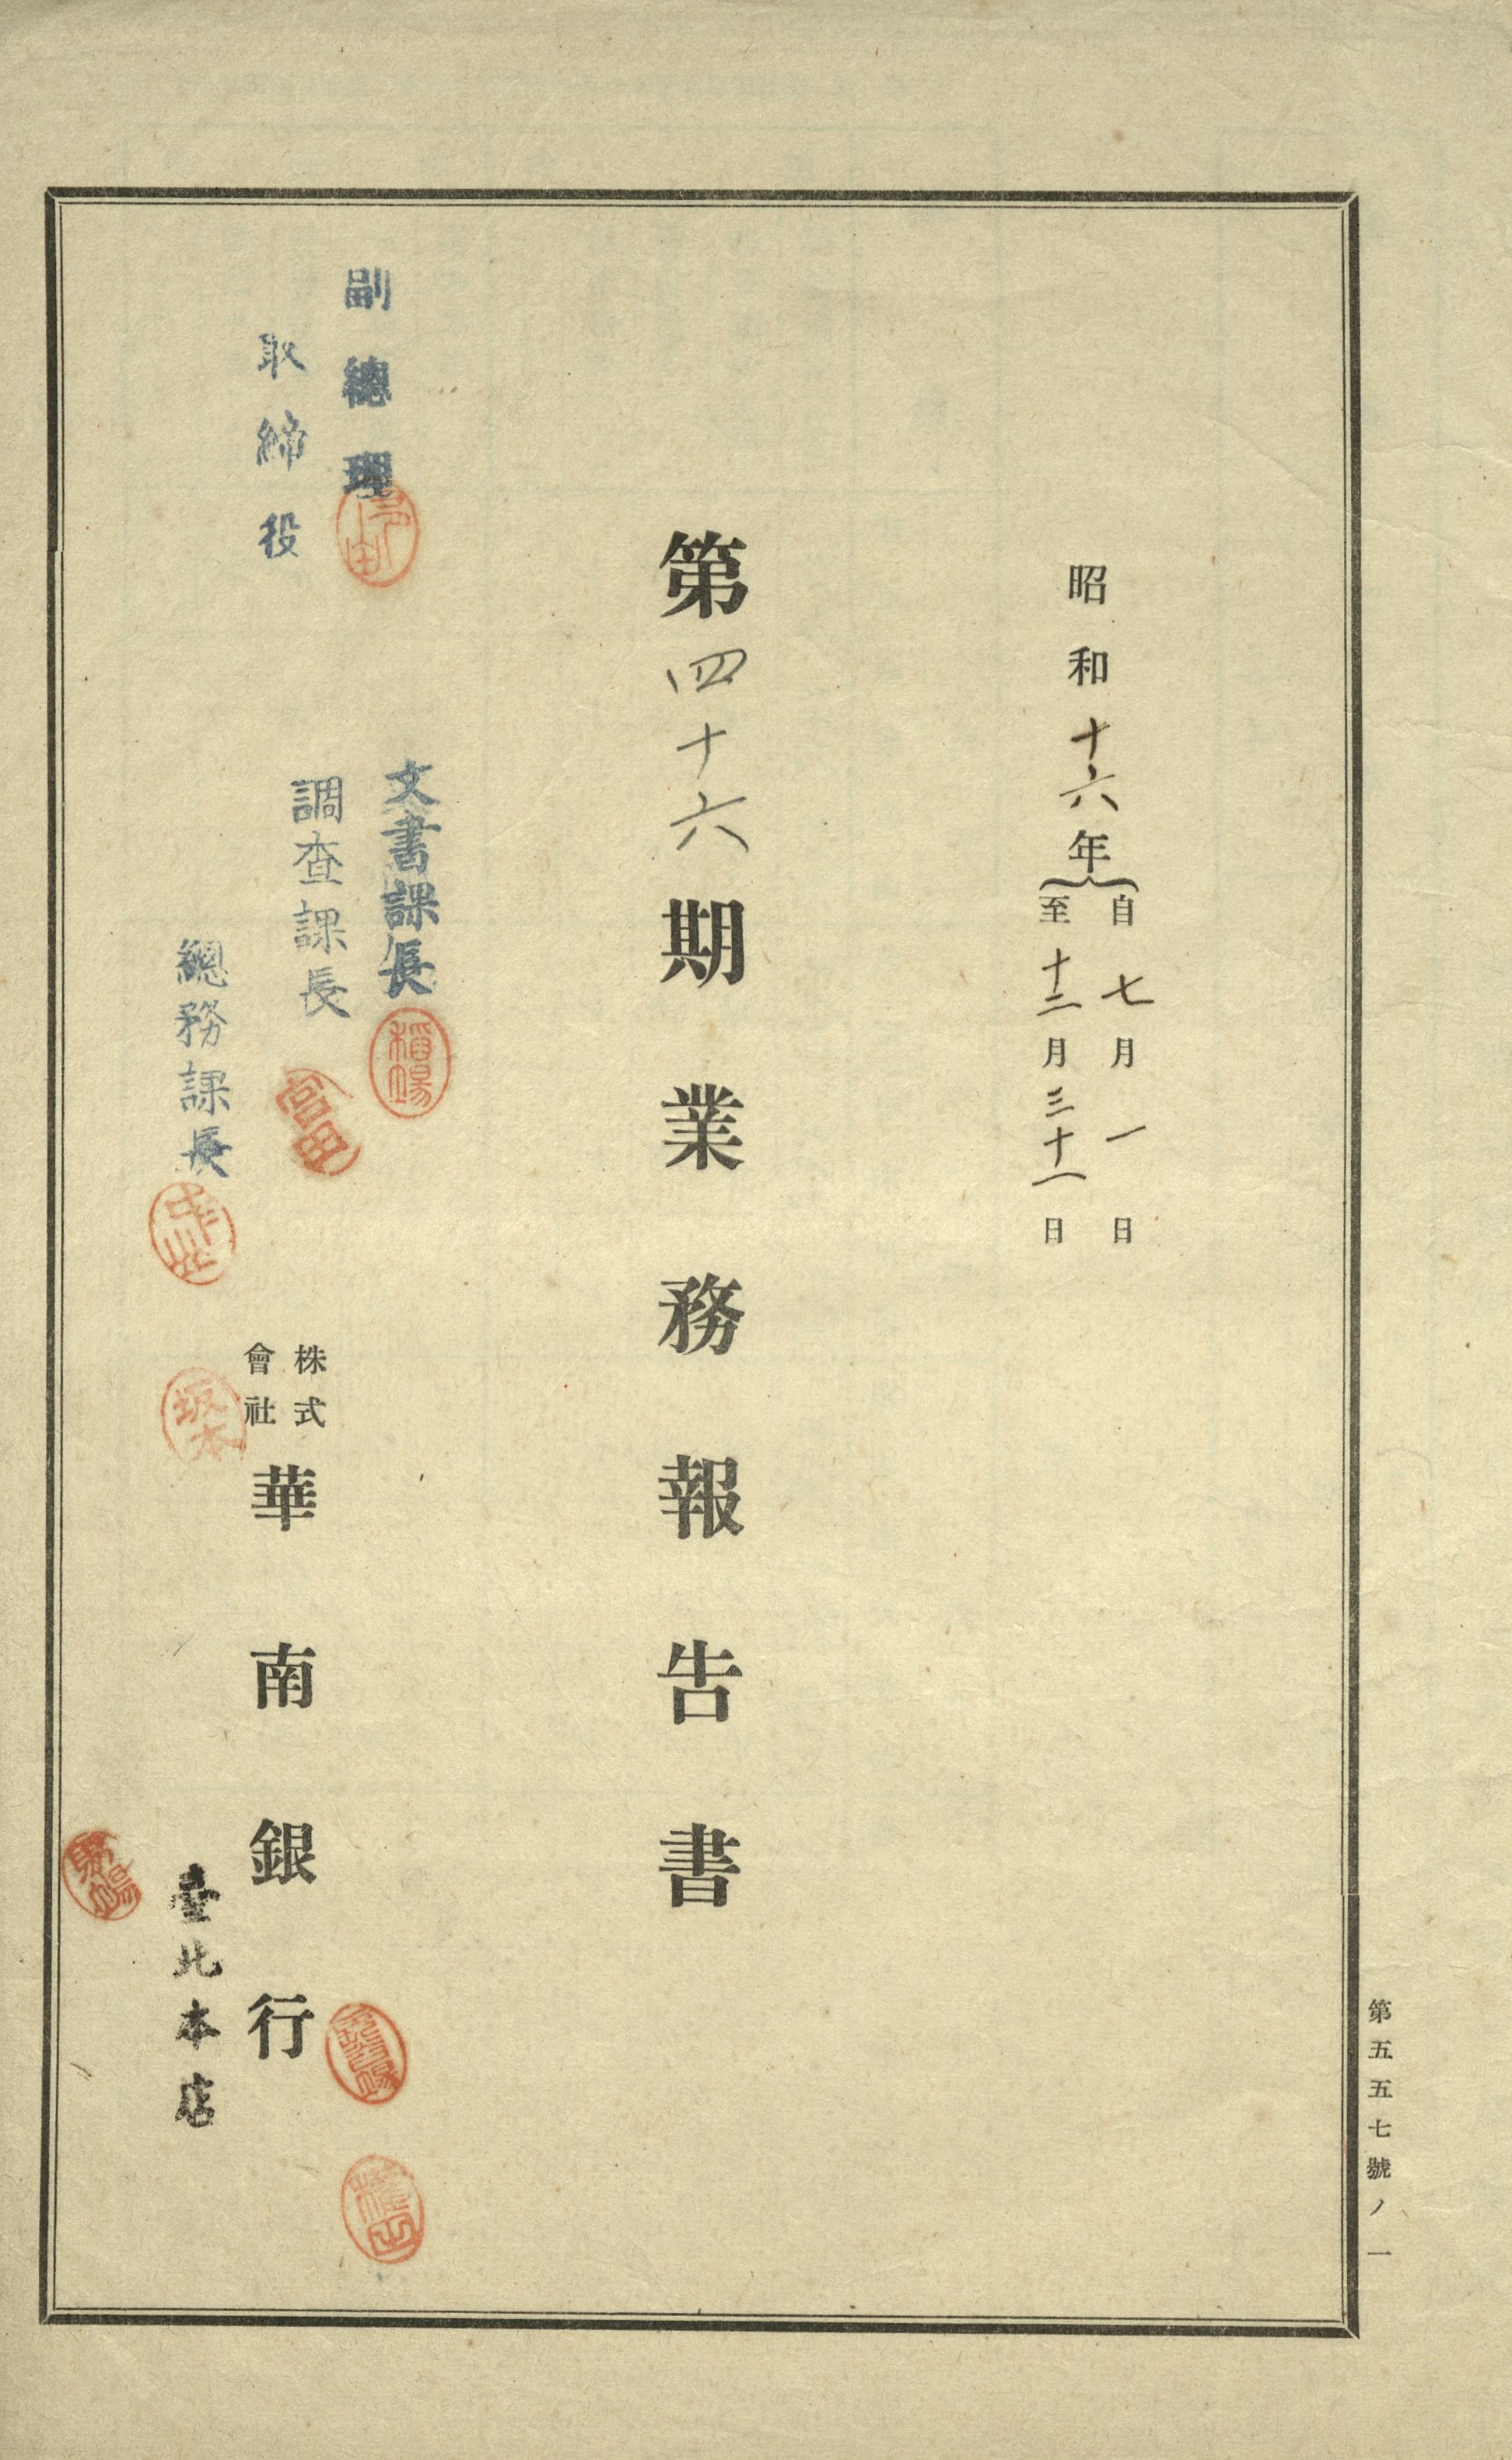 第五五七號ノ一
昭和十六年
自七月一日
至十二月三十一日
第四十六期業務報告書
副總理
取締役
文書課長
調查課長
宮田
總務課長
坂本
株式
會社
華南銀行
臺北本店